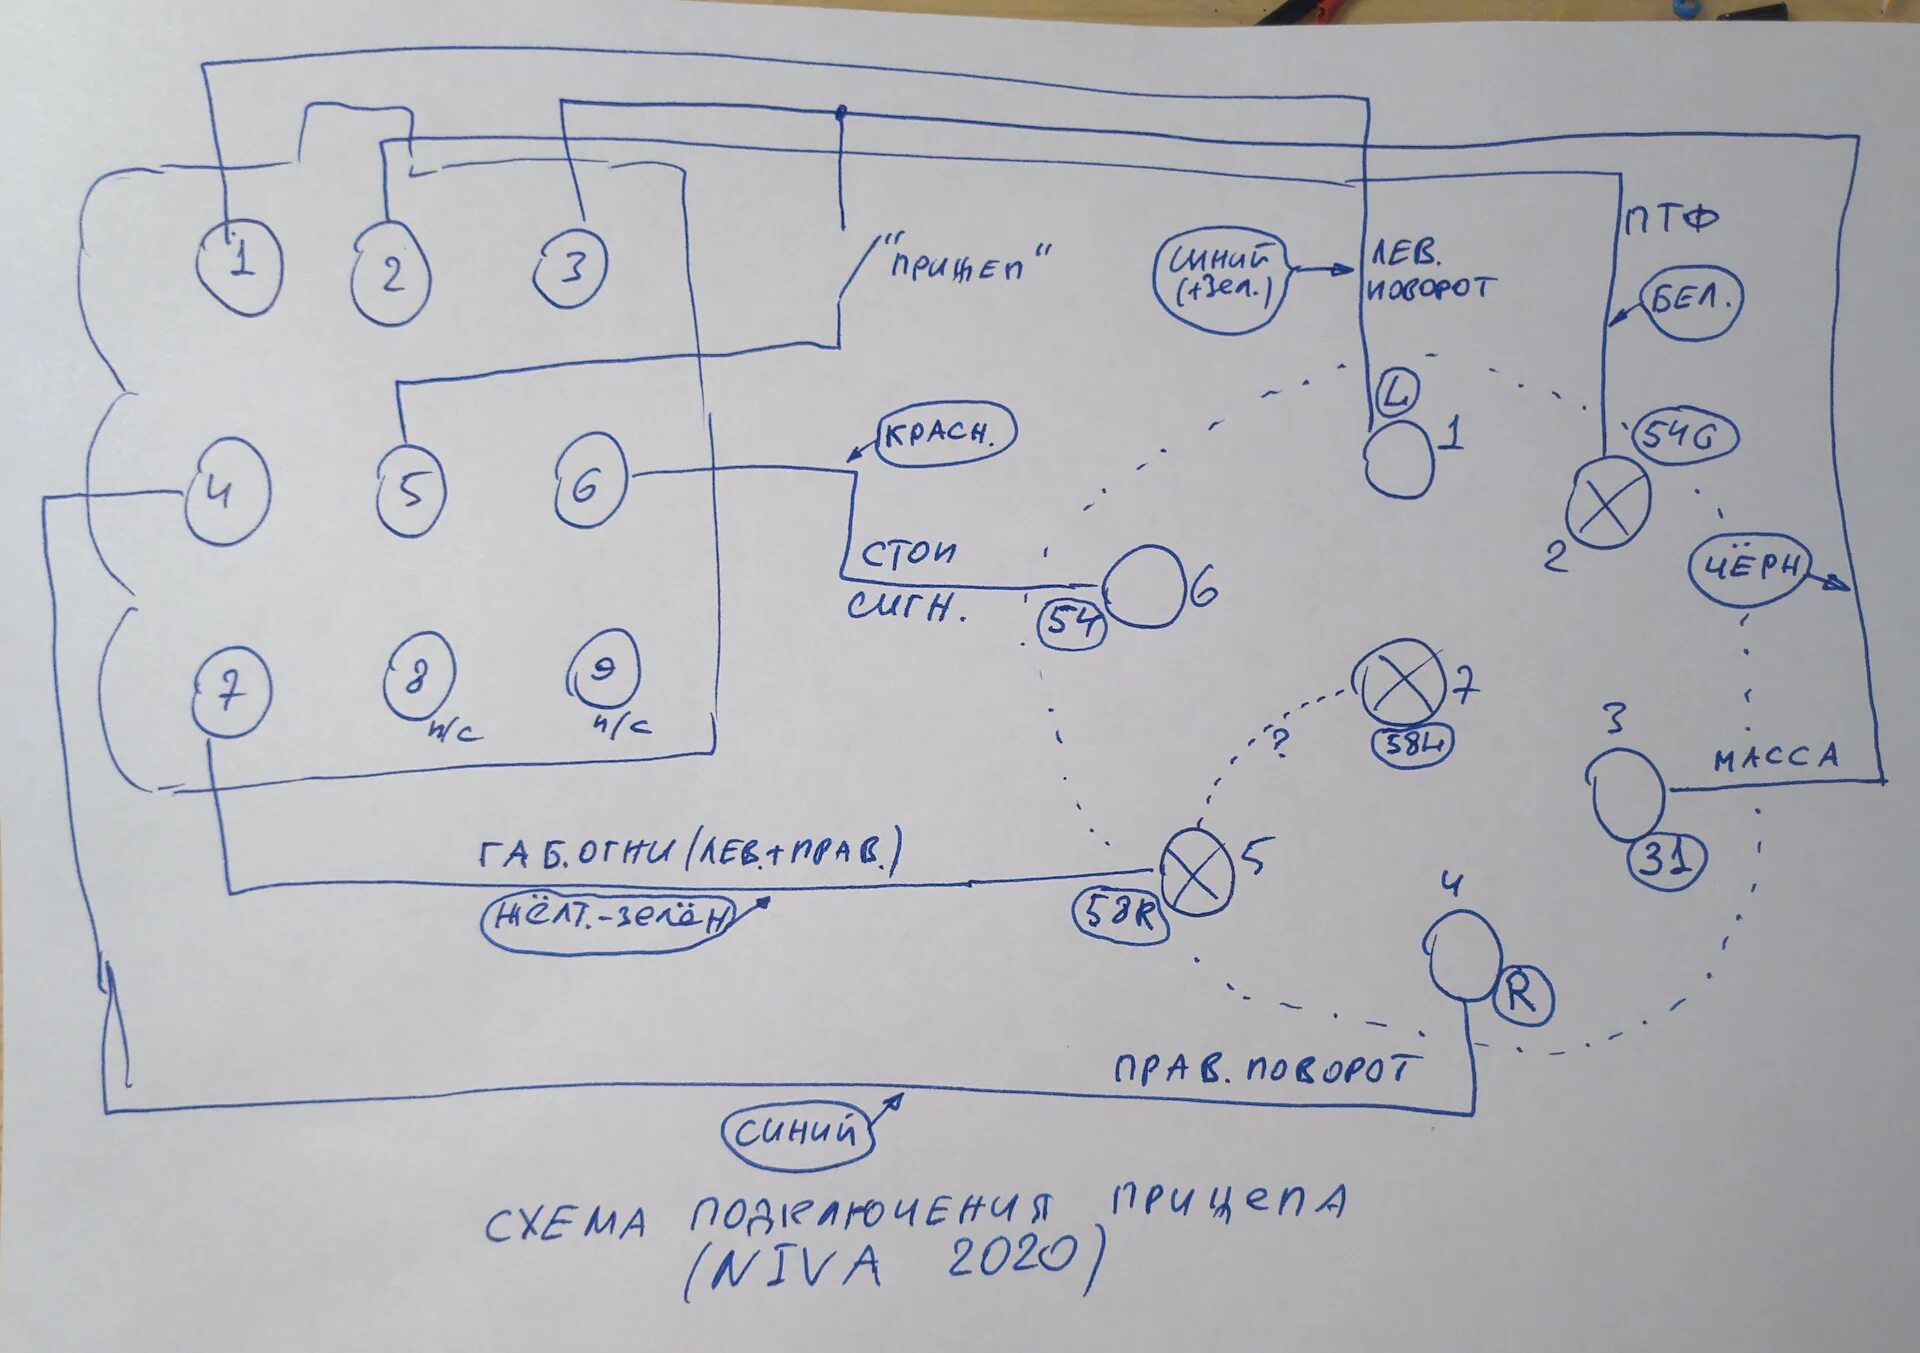 1
2
3
"ПРИЩЕП"
СИНИЙ
(+ЗЕЛ.)
ЛЕВ.
ПОВОРОТ
ПТФ
БЕЛ.
4
5
6
КРАСН.
L
1
54G
2
СТОП
СИГН.
54
6
ЧЁРН
7
8
н/с
9
н/с
7
58L
?
3
МАССА
31
ГАБ. ОГНИ (ЛЕВ.+ПРАВ.)
ЖЁЛТ.-ЗЕЛЁН
58R
5
4
R
ПРАВ. ПОВОРОТ
СИНИЙ
СХЕМА ПОДКЛЮЧЕНИЯ ПРИЩЕПА
(NIVA 2020)